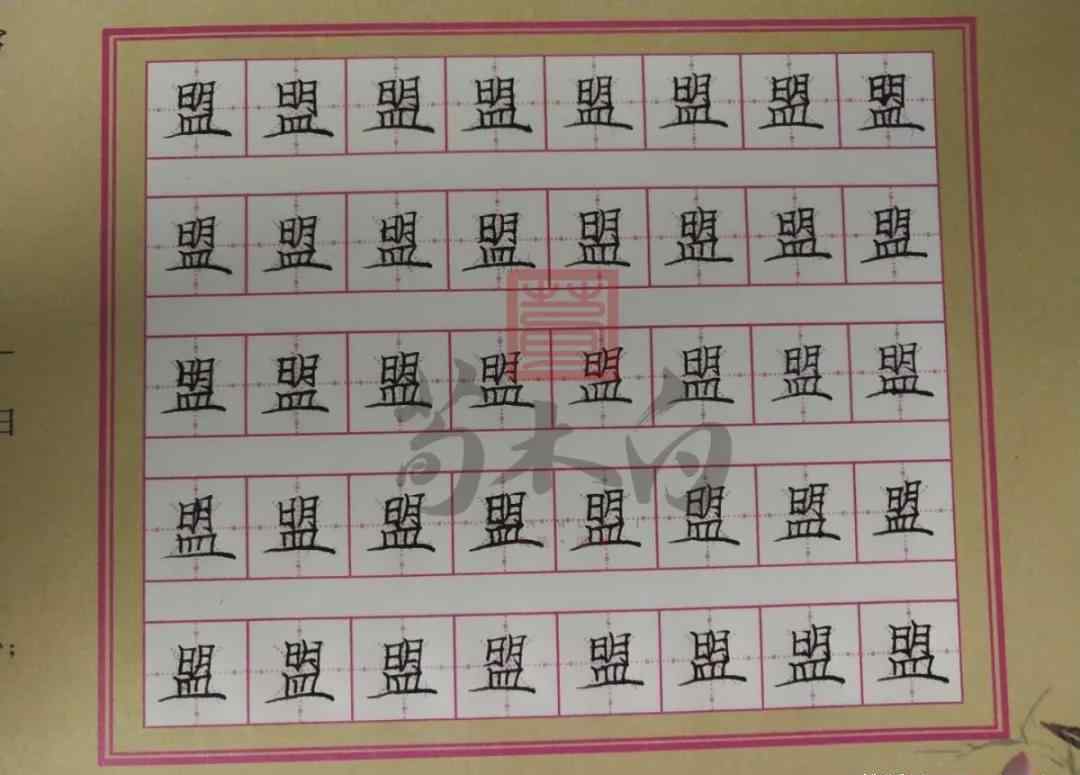 盟盟盟盟盟盟盟盟
盟盟盟盟盟盟盟盟
盟盟盟盟盟盟盟盟
荀木白
盟盟盟盟盟盟盟盟
盟盟盟盟盟盟盟盟